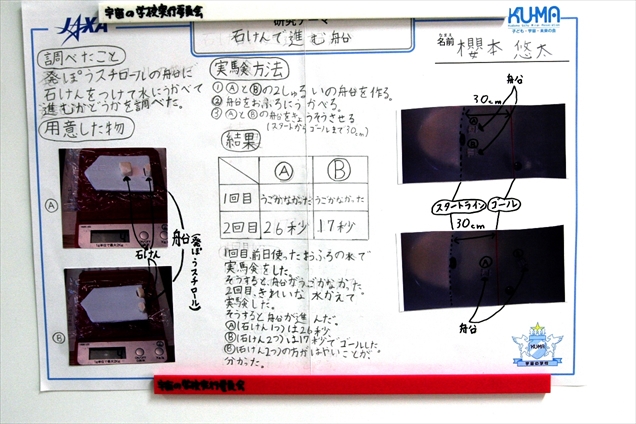 宇宙の学校実行委員会
JAXA
研究テーマ
石けんで進む船
KUMA
子ども・宇宙・未来の会
名前 櫻本 悠太
調べたこと
発ぽうスチロールの船に
石けんをつけて水にうかべて
進むかどうかを調べた。
用意した物
Ⓐ
Ⓑ
石けん
船
(発ぽうスチロール)
実験方法
① ⒶとⒷの2しゅるいの船を作る。
② 船をおふろにうかべる。
③ ⒶとⒷの船をきょうそうさせる
(スタートからゴールまで30cm)
結果
Ⓐ Ⓑ
1回目 うごかなかった うごかなかった
2回目 26秒 17秒
1回目、前日使ったおふろの水で
実験をした。
そうすると、船がうごかなかった。
2回目、きれいな水にかえて
実験した。
そうすると船が進んだ。
Ⓐ(石けん1つ)は26秒、
Ⓑ(石けん2つ)は17秒でゴールした
Ⓑ(石けん2つ)の方がはやいことが
分かった。
船
30cm
スタートライン
ゴール
30cm
船
KUMA
宇宙の学校
宇宙の学校実行委員会